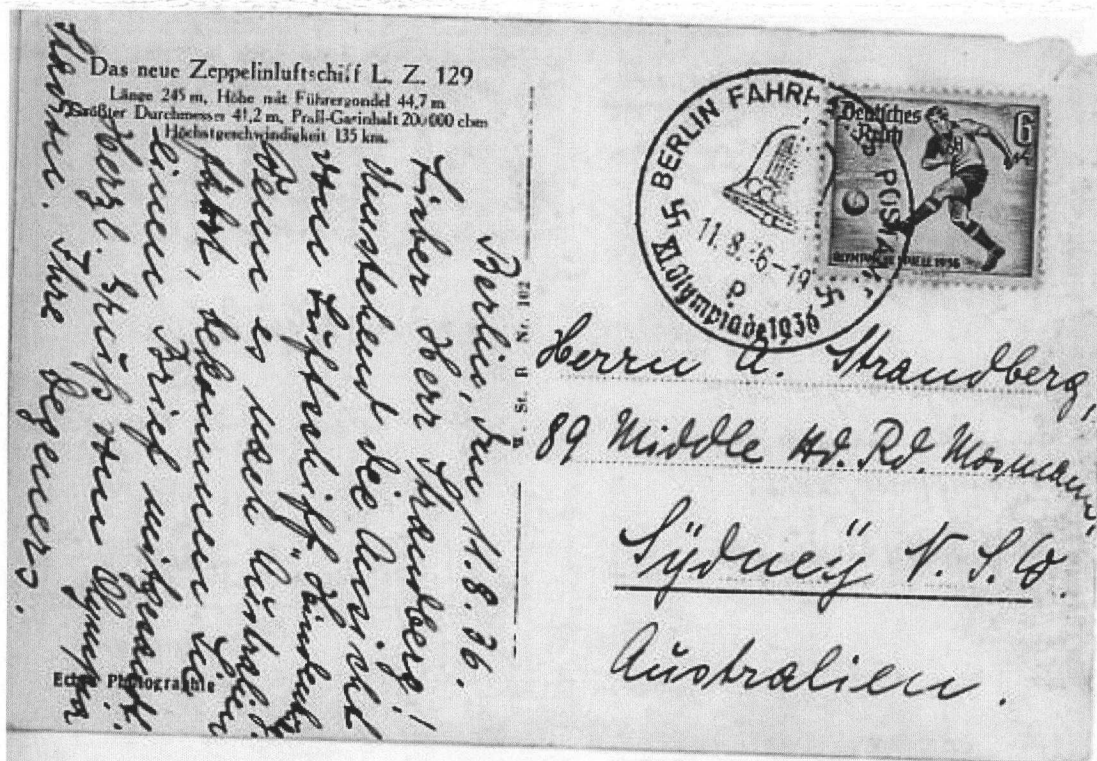 Das neue Zeppelinluftschiff L. Z. 129
Länge 245 m, Höhe mit Führergondel 44,7 m
Größter Durchmesser 41,2 m, Prall-Gasinhalt 200000 cbm
Höchstgeschwindigkeit 135 km.
Berlin, den 11.8.36.
Lieber Herr Strandberg!
Umstehend die Ansicht
vom Luftschiff „Hindenburg“.
Wenn es nach Australien
fährt, bekommen Sie
einen Brief mitgesandt.
Herzl. Gruß von Olympia
Ihre Degeners.
Echte Photographie
R Nr. 102
BERLIN FAHRB POSTAMT
11.8.36-19
P
XI. Olympiade 1936
Deutsches
Reich
6
OLYMPISCHE SPIELE 1936
Herrn A. Strandberg,
89 Middle Hd. Rd. Mosmann,
Sydney N.S.W.
Australien.